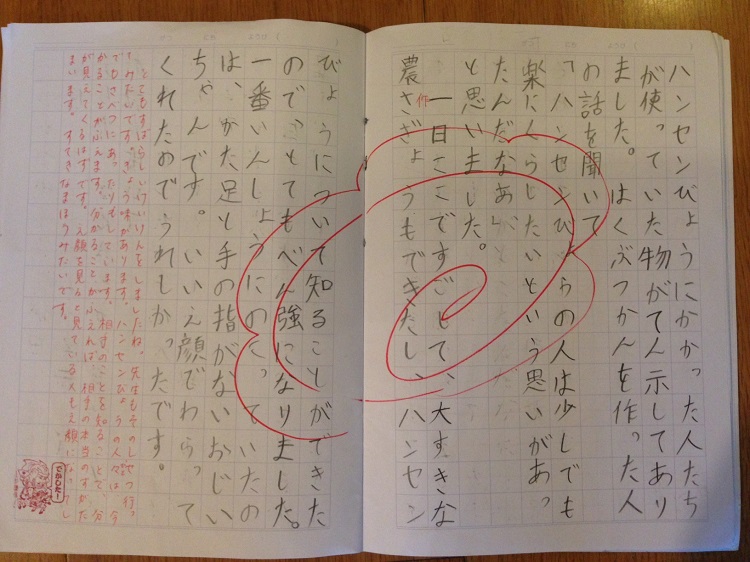 ハンセンびょうにかかった人たち
が使っていた物がてん示してあり
ました。はくぶつかんを作った人
の話を聞いて
「ハンセンびょうの人は少しでも
楽にくらしたいという思いがあっ
たんだなあ」
と思いました。
一日ここですごして、大すきな
農さぎょうもできたし、ハンセン
作
びょうについて知ることができた
のでとてもべん強になりました。
一番いんしょうにのこっていたの
は、かた足と手の指がないおじい
ちゃんです。いいえ顔でわらって
くれたのでうれしかったです。
とてもすばらしいけいけんをしましたね。先生もそのし設へ行っ
てみたいです。きょう味があります。ハンセンびょうの人々は、今
でもさべつにあったりもしています。相手のことを知ることで、分
かることがふえます。分かることがふえれば、相手の本当のすがた
が見えてくるはずです。え顔を見ると見ている人もえ顔になってし
まいます。すてきなまほうみたいです。